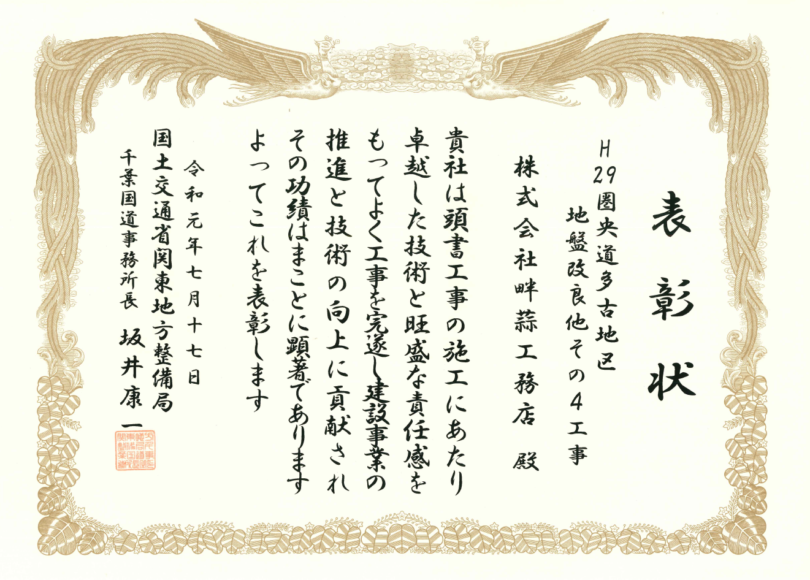 表彰状
H29圏央道多古地区
地盤改良他その4工事
株式会社畔蒜工務店 殿
貴社は頭書工事の施工にあたり
卓越した技術と旺盛な責任感を
もってよく工事を完遂し建設事業の
推進と技術の向上に貢献され
その功績はまことに顕著であります
よってこれを表彰します
令和元年七月十七日
国土交通省関東地方整備局
千葉国道事務所長 坂井康一